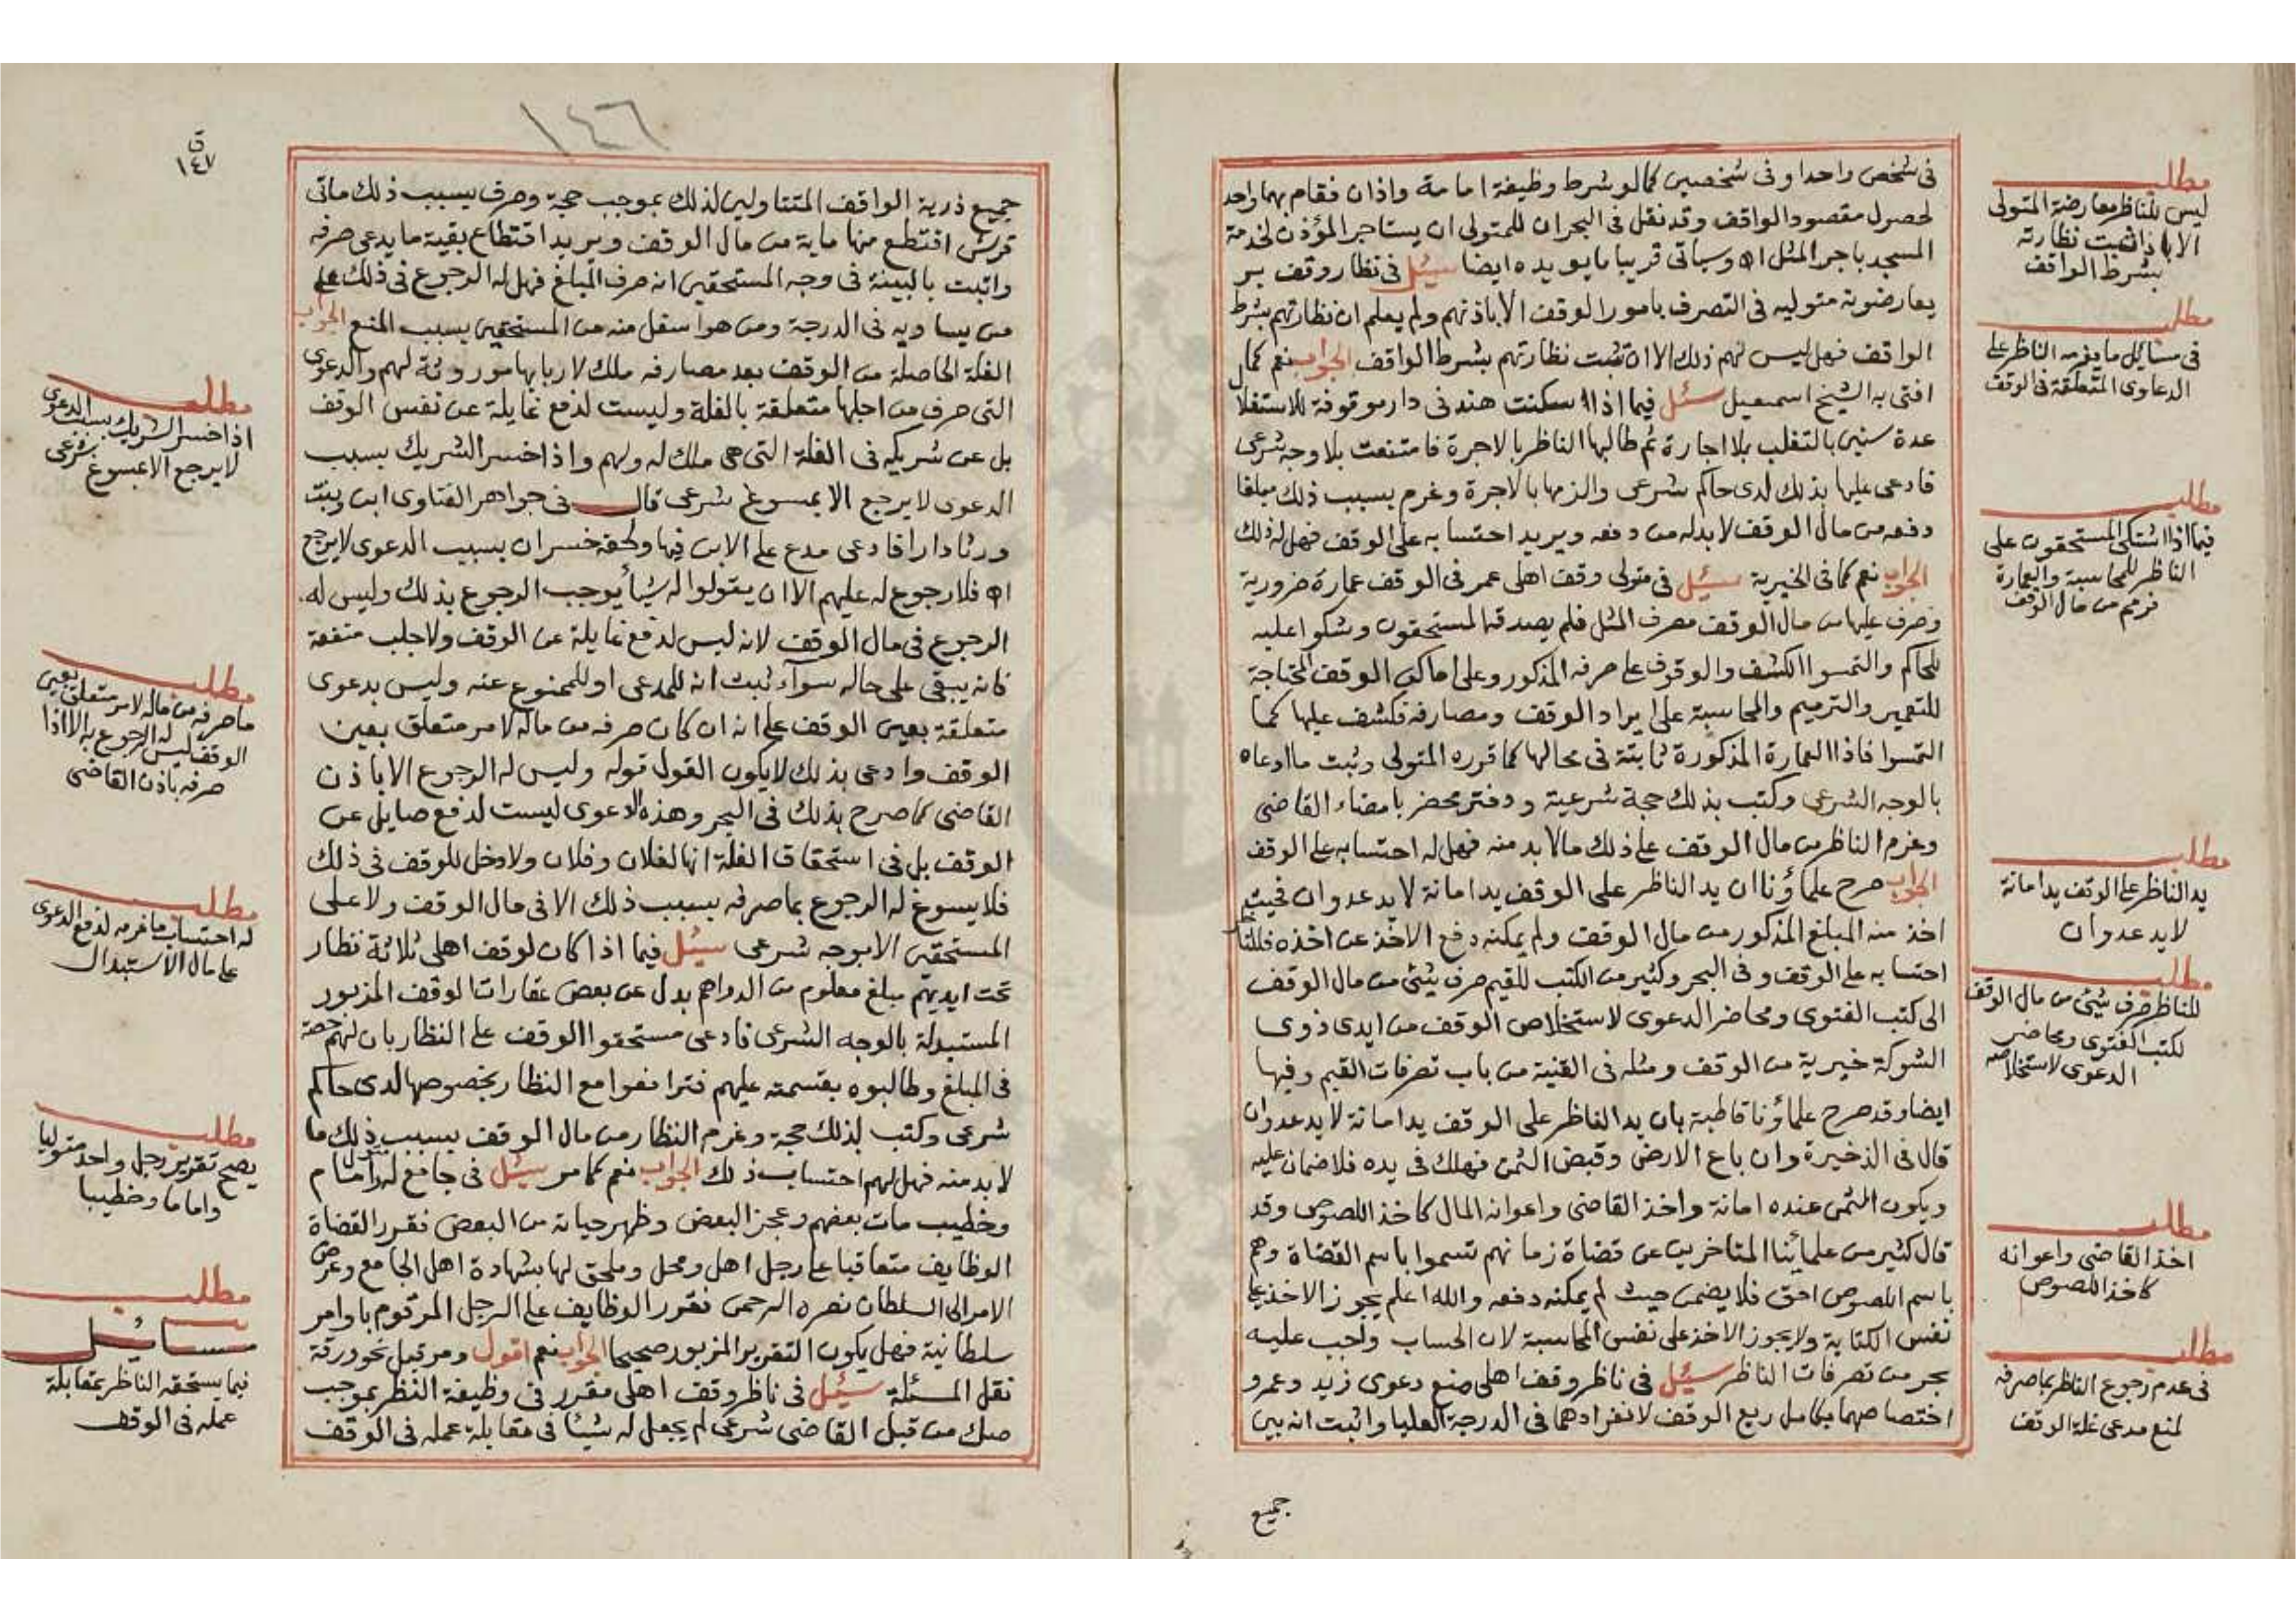 في شخص واحد او في شخصين كما لو شرط وظيفة امامة واذان فقام بهما واحد
لحصول مقصود الواقف وقد نقل في البحر ان للمتولى ان يستاجر المؤذن لخدمة
المسجد باجر المثل اه وسياتى قريبا ما يويده ايضا سئل في نظار وقف بر
يعارضونه متوليه في التصرف بامور الوقف الا باذنهم ولم يعلم ان نظارتهم بشرط
الواقف فهل ليس لهم ذلك الا ان تثبت نظارتهم بشرط الواقف الجواب نعم كما
افتى به الشيخ اسمعيل سئل فيما اذا سكنت هند في دار موقوفة للاستغلال
عدة سنين بالتغلب بلا اجارة ثم طالبها الناظر بالاجرة فامتنعت بلا وجه شرعى
فادعى عليها بذلك لدى حاكم شرعى والزمها بالاجرة وغرم بسبب ذلك مبلغا
دفعه من مال الوقف لا بد له من دفعه ويريد احتسابه على الوقف فهل له ذلك
الجواب نعم كما في الخيرية سئل في متولى وقف اهلى عمر في الوقف عمارة ضرورية
وصرف عليها من مال الوقف مصرف المثل فلم يصدقه المستحقون وشكوا عليه
للحاكم والتمسوا الكشف والوقوف على صرفه المذكور وعلى اماكن الوقف المحتاجة
للتعمير والترميم والمحاسبة على ايراد الوقف ومصارفه فكشف عليها كما
التمسوا فاذا العمارة المذكورة ثابتة في محالها كما قرره المتولى وثبت ما ادعاه
بالوجه الشرعى وكتب بذلك حجة شرعية ودفتر محضر بامضاء القاضى
وغرم الناظر من مال الوقف على ذلك ما لا بد منه فهل له احتسابه على الوقف
الجواب صرح علماؤنا ان يد الناظر على الوقف يد امانة لا يد عدوان فحيث
اخذ منه المبلغ المذكور من مال الوقف ولم يمكنه دفع الاخذ عن اخذه فللناظر
احتسابه على الوقف وفي البحر وكثير من الكتب للقيم صرف شئ من مال الوقف
الى كتب الفتوى ومحاضر الدعوى لاستخلاص الوقف من ايدى ذوى
الشوكة خيرية من الوقف ومثله في القنية من باب تصرفات القيم وفيها
ايضا وقد صرح علماؤنا قاطبة بان يد الناظر على الوقف يد امانة لا يد عدوان
قال في الذخيرة وان باع الارض وقبض الثمن فهلك في يده فلا ضمان عليه
ويكون الثمن عنده امانة واخذ القاضى واعوانه المال كاخذ اللصوص وقد
قال كثير من علمائنا المتاخرين عن قضاة زمانهم تسموا باسم القضاة وهم
باسم اللصوص احق فلا يضمن حيث لم يمكنه دفعه والله اعلم يجوز الاخذ على
نفس الكتابة ولا يجوز الاخذ على نفس المحاسبة لان الحساب واجب عليه
بحر من تصرفات الناظر سئل في ناظر وقف اهلى منع دعوى زيد وعمرو
اختصاصهما بكامل ريع الوقف لانفرادهما في الدرجة العليا واثبت انه بين
جميع
مطلب
ليس للناظر معارضة المتولى
الا اذا ثبتت نظارته
بشرط الواقف
مطلب
في مسائل ما يغرمه الناظر على
الدعاوى المتعلقة في الوقف
مطلب
فيما اذا اشتكى المستحقون على
الناظر للمحاسبة والعمارة
فغرم من مال الوقف
مطلب
يد الناظر على الوقف يد امانة
لا يد عدوان
مطلب
للناظر صرف شئ من مال الوقف
لكتب الفتوى ومحاضر
الدعوى لاستخلاصه
مطلب
اخذ القاضى واعوانه
كاخذ اللصوص
مطلب
في عدم رجوع الناظر بما صرفه
لمنع مدعى غلة الوقف
١٤٦
ق
١٤٧
جميع ذرية الواقف المتناولين لذلك بموجب حجة وصرف بسبب ذلك ماتى
قرش اقتطع منها ماية من مال الوقف ويريد اقتطاع بقية ما يدعى صرفه
واثبت بالبينة في وجه المستحقين انه صرف المبلغ فهل له الرجوع في ذلك على
من يساويه في الدرجة ومن هو اسفل منه من المستحقين بسبب المنع الجواب
الغلة الحاصلة من الوقف بعد مصارفه ملك لاربابها موروثة لهم والدعوى
التى صرف من اجلها متعلقة بالغلة وليست لدفع غايلة عن نفس الوقف
بل عن شريكه في الغلة التى هى ملك له ولهم واذا خسر الشريك بسبب
الدعوى لا يرجع الا بمسوغ شرعى قال في جواهر الفتاوى ابن وبنت
ورثا دارا فادعى مدع على الابن فيها ولحقه خسران بسبب الدعوى لا يرجع
اه فلا رجوع له عليهم الا ان يقولوا له شيأ يوجب الرجوع بذلك وليس له
الرجوع في مال الوقف لانه ليس لدفع غايلة عن الوقف ولا جلب منفعة
فانه يبقى على حاله سوآء ثبت انه للمدعى او للممنوع عنه وليس بدعوى
متعلقة بعين الوقف على انه ان كان صرفه من ماله لامر متعلق بعين
الوقف وادعى بذلك لا يكون القول قوله وليس له الرجوع الا باذن
القاضى كما صرح بذلك في البحر وهذه الدعوى ليست لدفع صايل عن
الوقف بل في استحقاق الغلة انها لفلان وفلان ولا دخل للوقف في ذلك
فلا يسوغ له الرجوع بما صرفه بسبب ذلك الا في مال الوقف ولا على
المستحقين الا بوجه شرعى سئل فيما اذا كان لوقف اهلى ثلاثة نظار
تحت ايديهم مبلغ معلوم من الدراهم بدل عن بعض عقارات الوقف المزبور
المستبدلة بالوجه الشرعى فادعى مستحقوا الوقف على النظار بان لهم حصة
في المبلغ وطالبوه بقسمته عليهم فترافعوا مع النظار بخصوصها لدى حاكم
شرعى وكتب بذلك حجة وغرم النظار من مال الوقف بسبب ذلك ما
لا بد منه فهل لهم احتساب ذلك الجواب نعم كما مر سئل في جامع له متول وامام
وخطيب مات بعضهم وعجز البعض وظهر خيانة من البعض فقرر القضاة
الوظايف متعاقبا على رجل اهل ومحل وملحق لها بشهادة اهل الجامع وعرض
الامر الى السلطان نصره الرحمن فقرر الوظايف على الرجل المرقوم باوامر
سلطانية فهل يكون التقرير المزبور صحيحا الجواب نعم اقول ومر قبل نحو ورقة
نقل المسئلة سئل في ناظر وقف اهلى مقرر في وظيفة النظر بموجب
صك من قبل القاضى شرعى لم يجعل له شيئا في مقابلة عمله في الوقف
مطلب
اذا خسر الشريك بسبب الدعوى
لا يرجع الا بمسوغ شرعى
مطلب
ما صرفه من ماله لامر متعلق بعين
الوقف ليس له الرجوع به الا اذا
صرفه باذن القاضى
مطلب
له احتساب ما غرمه لدفع الدعوى
على مال الاستبدال
مطلب
يصح تقرير رجل واحد متوليا
واماما وخطيبا
مطلب
مسائل
فيما يستحقه الناظر بمقابلة
عمله في الوقف